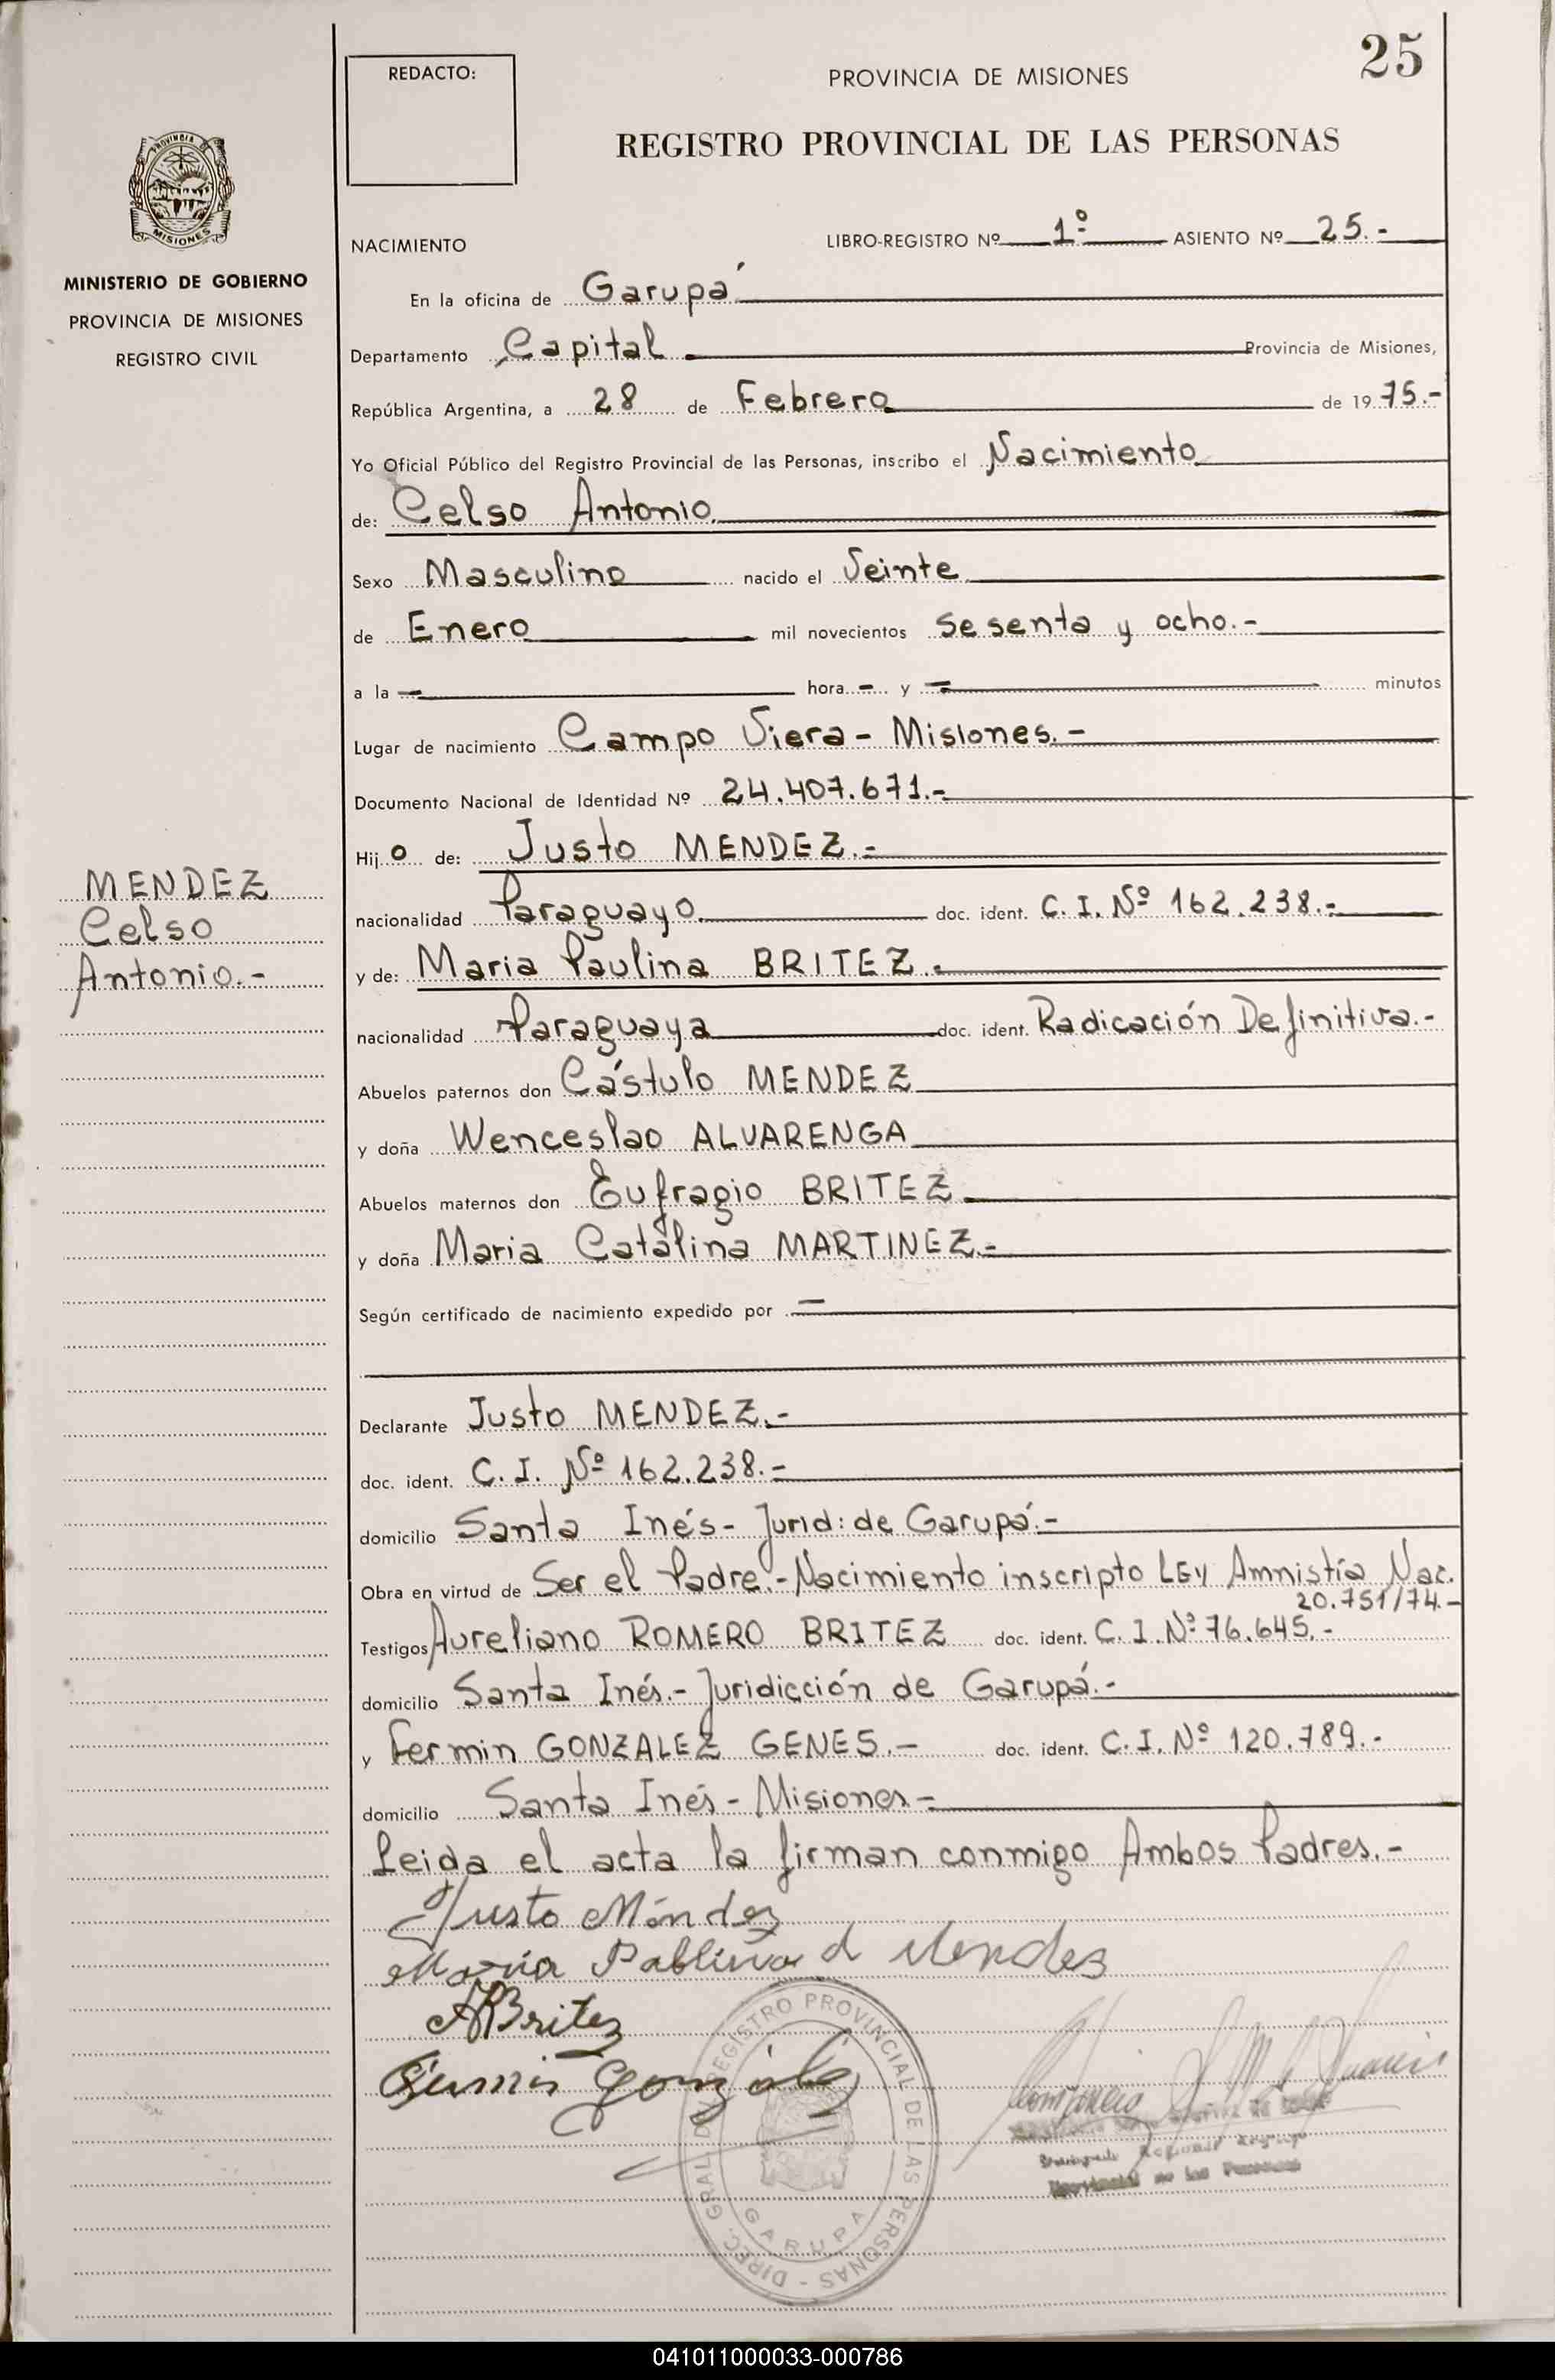 25
REDACTO:
PROVINCIA DE MISIONES
REGISTRO PROVINCIAL DE LAS PERSONAS
PROVINCIA DE
MISIONES
MINISTERIO DE GOBIERNO
PROVINCIA DE MISIONES
REGISTRO CIVIL
NACIMIENTO LIBRO-REGISTRO Nº 1º ASIENTO Nº 25.-
En la oficina de Garupá
Departamento Capital Provincia de Misiones,
República Argentina, a 28 de Febrero de 1975.-
Yo Oficial Público del Registro Provincial de las Personas, inscribo el Nacimiento
de: Celso Antonio.
Sexo Masculino nacido el Veinte
de Enero mil novecientos sesenta y ocho.-
a la — hora - y — minutos
Lugar de nacimiento Campo Viera - Misiones.-
Documento Nacional de Identidad Nº 24.407.671.-
Hijo de: Justo MENDEZ.-
MENDEZ
Celso
Antonio.-
nacionalidad Paraguayo. doc. ident. C. I. Nº 162.238.-
y de: Maria Paulina BRITEZ.-
nacionalidad Paraguaya doc. ident. Radicación Definitiva.-
Abuelos paternos don Cástulo MENDEZ
y doña Wenceslao ALVARENGA
Abuelos maternos don Eufragio BRITEZ
y doña Maria Catalina MARTINEZ.-
Según certificado de nacimiento expedido por —
Declarante Justo MENDEZ.-
doc. ident. C. I. Nº 162.238.-
domicilio Santa Inés - Jurid: de Garupá.-
Obra en virtud de Ser el Padre.-Nacimiento inscripto LEY Amnistía Nac.
20.751/74.-
Testigos Aureliano ROMERO BRITEZ doc. ident. C. I. Nº 76.645.-
domicilio Santa Inés.- Juridicción de Garupá.-
y Fermin GONZALEZ GENES.- doc. ident. C. I. Nº 120.789.-
domicilio Santa Inés - Misiones -
Leida el acta la firman conmigo Ambos Padres.-
Justo Méndez
Maria Pablina d Mendes
ABritez
Fermin González
DIREC. GRAL. DEL REGISTRO PROVINCIAL DE LAS PERSONAS -
GARUPA
Provincial de las Personas
041011000033-000786